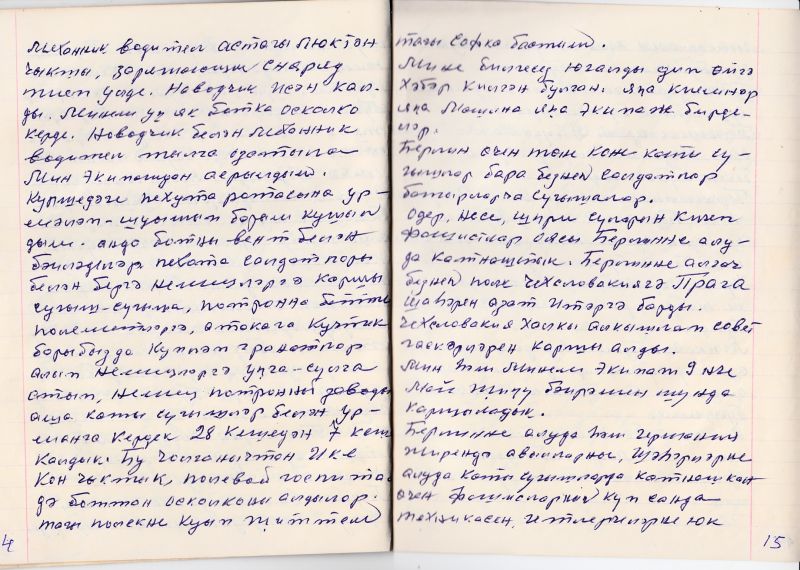 Механик водител астагы люктан
чыкты, заряжающий снаряд
тиеп үлде. Наводчик исән кал-
ды. Минем уң як ботка осколка
керде. Наводчик белән механик
водител тылга озатыла
мин экипаждан аерылдым.
Күпшедәге пехута ротасына ур-
мәләп-шуышып барып кушыл
дым. анда ботны бент белән
бәйләделәр, пехота салдатлары
белән бергә немецларга каршы
сугыш-сугыша, патронна бетте
полеметларга, атокага күчтек
барыбызда күпләп гранатлар
алып немецларга уңга-сулга
атып, немец патронны заводы
аша каты сугышлар белән ур-
манга кердек 28 кешедән 7 кеше
калдык. Бу чолганычтан ике
көн чыктык, полевой госпитал
дә боттан осколканы алдылар.
тагы полекне куып җиттем
4
тагы сафка бастым.
Мине билгесез югалды дип өйгә
хәбәр килгән булган. яңа кишеләр
яңа машина яңа экипаж бирде-
ләр.
Берлин өчен төн көн каты су-
гышлар бара безнең салдатлар
батырларча сугышалар.
Одер, Несе, Шпри суларын кичеп
фашистлар оясы Берлинне алу-
да катнаштык. Берлинне алгач
безнең полк Чехословакиягә Прага
шәһәрен азат итәргә барды.
Чехословакия халкы алкышлап совет
гаскәрләрен каршы алды.
Мин һәм минем экипаж 9 нче
Май җиңү бәйрәмен шунда
каршыладык.
Берлинне алуда һәм германия
җирендә авылларны, шәһәрләрне
алуда каты сугышларда катнашкан
өчен фашистларның күп санда
техникасен, җитләрнеләрне юк
15